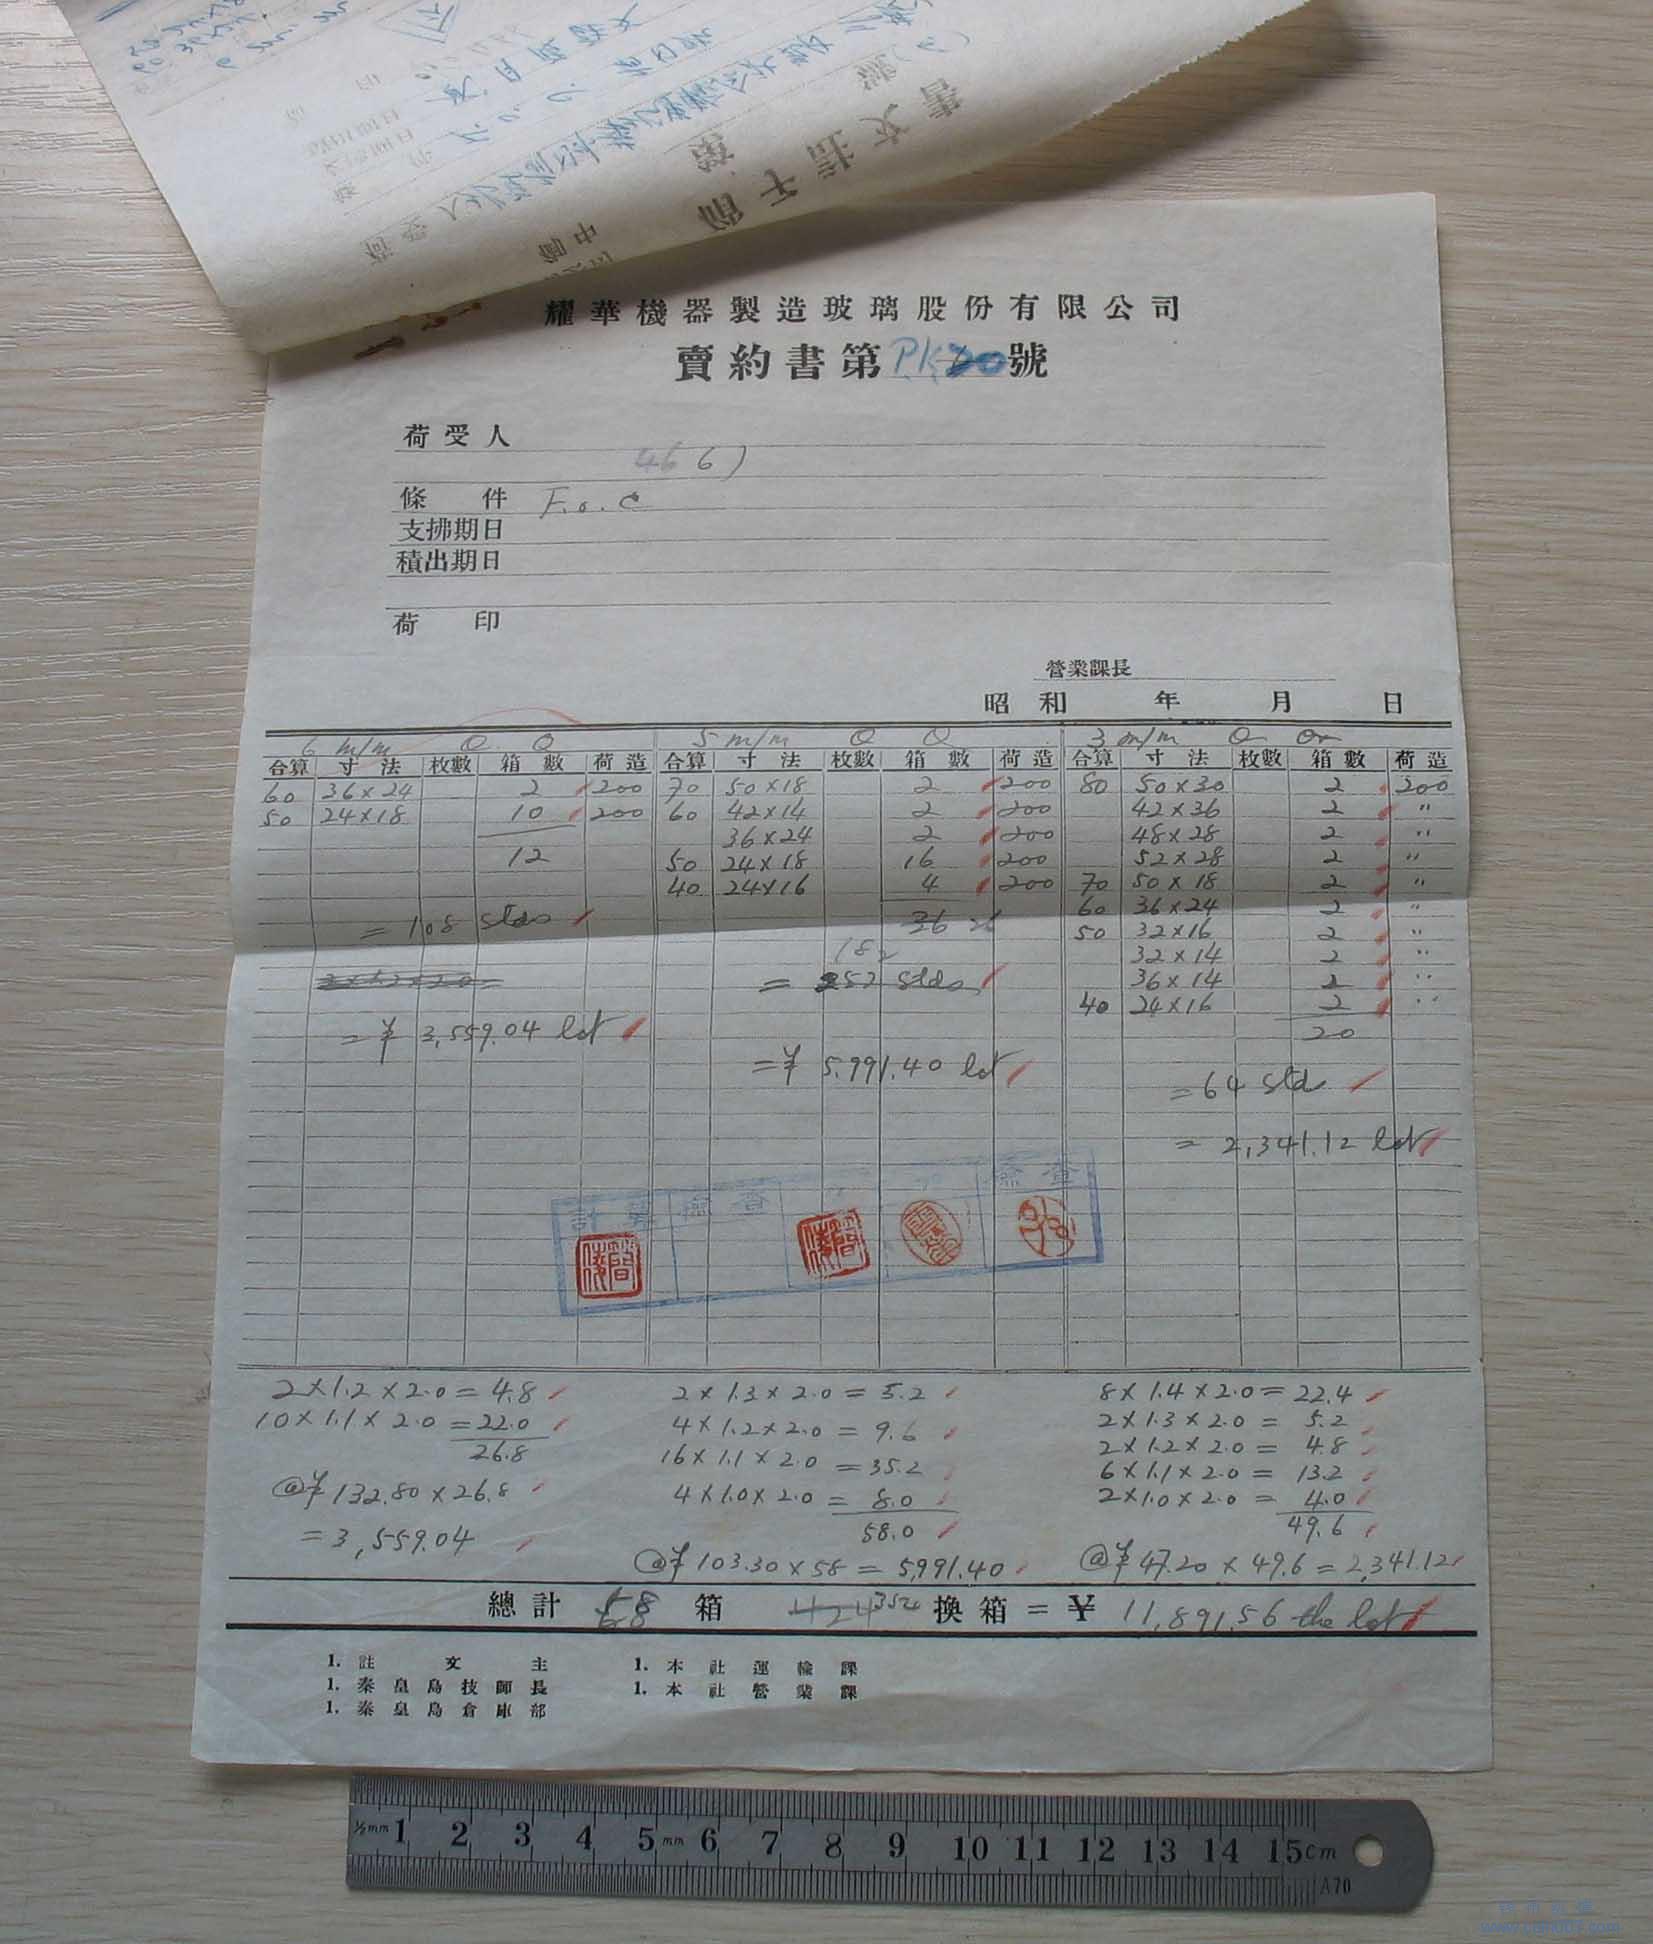 書文指子硝
耀華機器製造玻璃股份有限公司
賣約書第P.K.20號
荷受人
466)
條件 F.o.c
支拂期日
積出期日
荷印
營業課長
昭和 年 月 日
6 m/m Q Q 5 m/m Q Q 3 m/m Q Or
合算 寸法 枚數 箱數 荷造 合算 寸法 枚數 箱數 荷造 合算 寸法 枚數 箱數 荷造
60 36×24 2 200 70 50×18 2 200 80 50×30 2 200
50 24×18 10 200 60 42×14 2 200 42×36 2 "
36×24 2 200 48×28 2 "
12 50 24×18 16 200 52×28 2 "
40 24×16 4 200 70 50×18 2 "
= 108 stds 26 26 60 36×24 2 "
50 32×16 2 "
182 32×14 2 "
2×1.2×2.0= = 252 stds 36×14 2 "
40 24×16 2 "
= ¥ 3,559.04 lot 20
= ¥ 5,991.40 lot
= 64 std
= 2,341.12 lot
計算 檢查 檢查
2×1.2×2.0=4.8 2×1.3×2.0=5.2 8×1.4×2.0=22.4
10×1.1×2.0=22.0 4×1.2×2.0=9.6 2×1.3×2.0=5.2
26.8 16×1.1×2.0=35.2 2×1.2×2.0=4.8
@¥132.80×26.8 4×1.0×2.0=8.0 6×1.1×2.0=13.2
=3,559.04 58.0 2×1.0×2.0=4.0
49.6
@¥103.30×58=5,991.40 @¥47.20×49.6=2,341.12
總計 58 箱 424 352 換箱=¥ 11,891.56 the lot
1. 註文主 1. 本社運輸課
1. 秦皇島技師長 1. 本社營業課
1. 秦皇島倉庫部
½mm 1 2 3 4 5 mm 6 7 8 9 10 11 12 13 14 15cm
A70